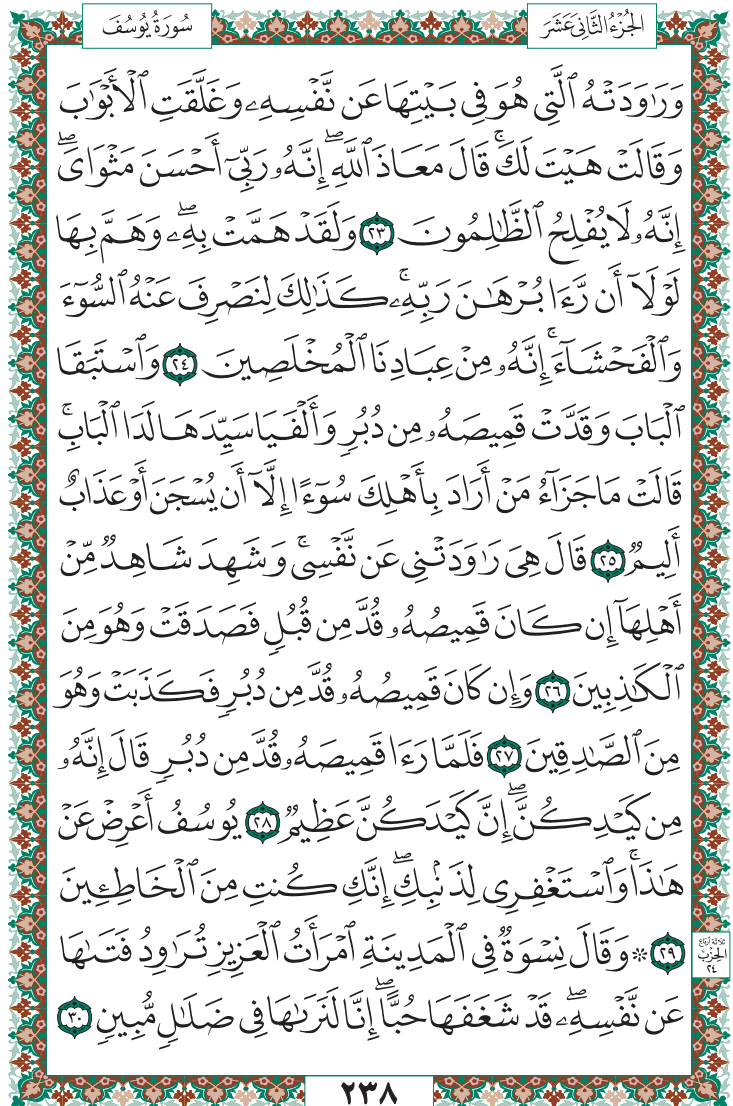 سُورَةُ يُوسُفَ
الجُزْءُ الثَّانِي عَشَرَ
وَرَٰوَدَتْهُ ٱلَّتِى هُوَ فِى بَيْتِهَا عَن نَّفْسِهِۦ وَغَلَّقَتِ ٱلْأَبْوَٰبَ
وَقَالَتْ هَيْتَ لَكَ ۚ قَالَ مَعَاذَ ٱللَّهِ ۖ إِنَّهُۥ رَبِّىٓ أَحْسَنَ مَثْوَاىَ ۖ
إِنَّهُۥ لَا يُفْلِحُ ٱلظَّٰلِمُونَ ٢٣ وَلَقَدْ هَمَّتْ بِهِۦ ۖ وَهَمَّ بِهَا
لَوْلَآ أَن رَّءَا بُرْهَٰنَ رَبِّهِۦ ۚ كَذَٰلِكَ لِنَصْرِفَ عَنْهُ ٱلسُّوٓءَ
وَٱلْفَحْشَآءَ ۚ إِنَّهُۥ مِنْ عِبَادِنَا ٱلْمُخْلَصِينَ ٢٤ وَٱسْتَبَقَا
ٱلْبَابَ وَقَدَّتْ قَمِيصَهُۥ مِن دُبُرٍ وَأَلْفَيَا سَيِّدَهَا لَدَا ٱلْبَابِ ۚ
قَالَتْ مَا جَزَآءُ مَنْ أَرَادَ بِأَهْلِكَ سُوٓءًا إِلَّآ أَن يُسْجَنَ أَوْ عَذَابٌ
أَلِيمٌ ٢٥ قَالَ هِىَ رَٰوَدَتْنِى عَن نَّفْسِى ۚ وَشَهِدَ شَاهِدٌ مِّنْ
أَهْلِهَآ إِن كَانَ قَمِيصُهُۥ قُدَّ مِن قُبُلٍ فَصَدَقَتْ وَهُوَ مِنَ
ٱلْكَٰذِبِينَ ٢٦ وَإِن كَانَ قَمِيصُهُۥ قُدَّ مِن دُبُرٍ فَكَذَبَتْ وَهُوَ
مِنَ ٱلصَّٰدِقِينَ ٢٧ فَلَمَّا رَءَا قَمِيصَهُۥ قُدَّ مِن دُبُرٍ قَالَ إِنَّهُۥ
مِن كَيْدِكُنَّ ۖ إِنَّ كَيْدَكُنَّ عَظِيمٌ ٢٨ يُوسُفُ أَعْرِضْ عَنْ
هَٰذَا ۚ وَٱسْتَغْفِرِى لِذَنۢبِكِ ۖ إِنَّكِ كُنتِ مِنَ ٱلْخَاطِـِٔينَ
٢٩ ۞ وَقَالَ نِسْوَةٌ فِى ٱلْمَدِينَةِ ٱمْرَأَتُ ٱلْعَزِيزِ تُرَٰوِدُ فَتَىٰهَا
عَن نَّفْسِهِۦ ۖ قَدْ شَغَفَهَا حُبًّا ۖ إِنَّا لَنَرَىٰهَا فِى ضَلَٰلٍ مُّبِينٍ ٣٠
ثلاثة أرباع
الحِزْب
٢٤
٢٣٨